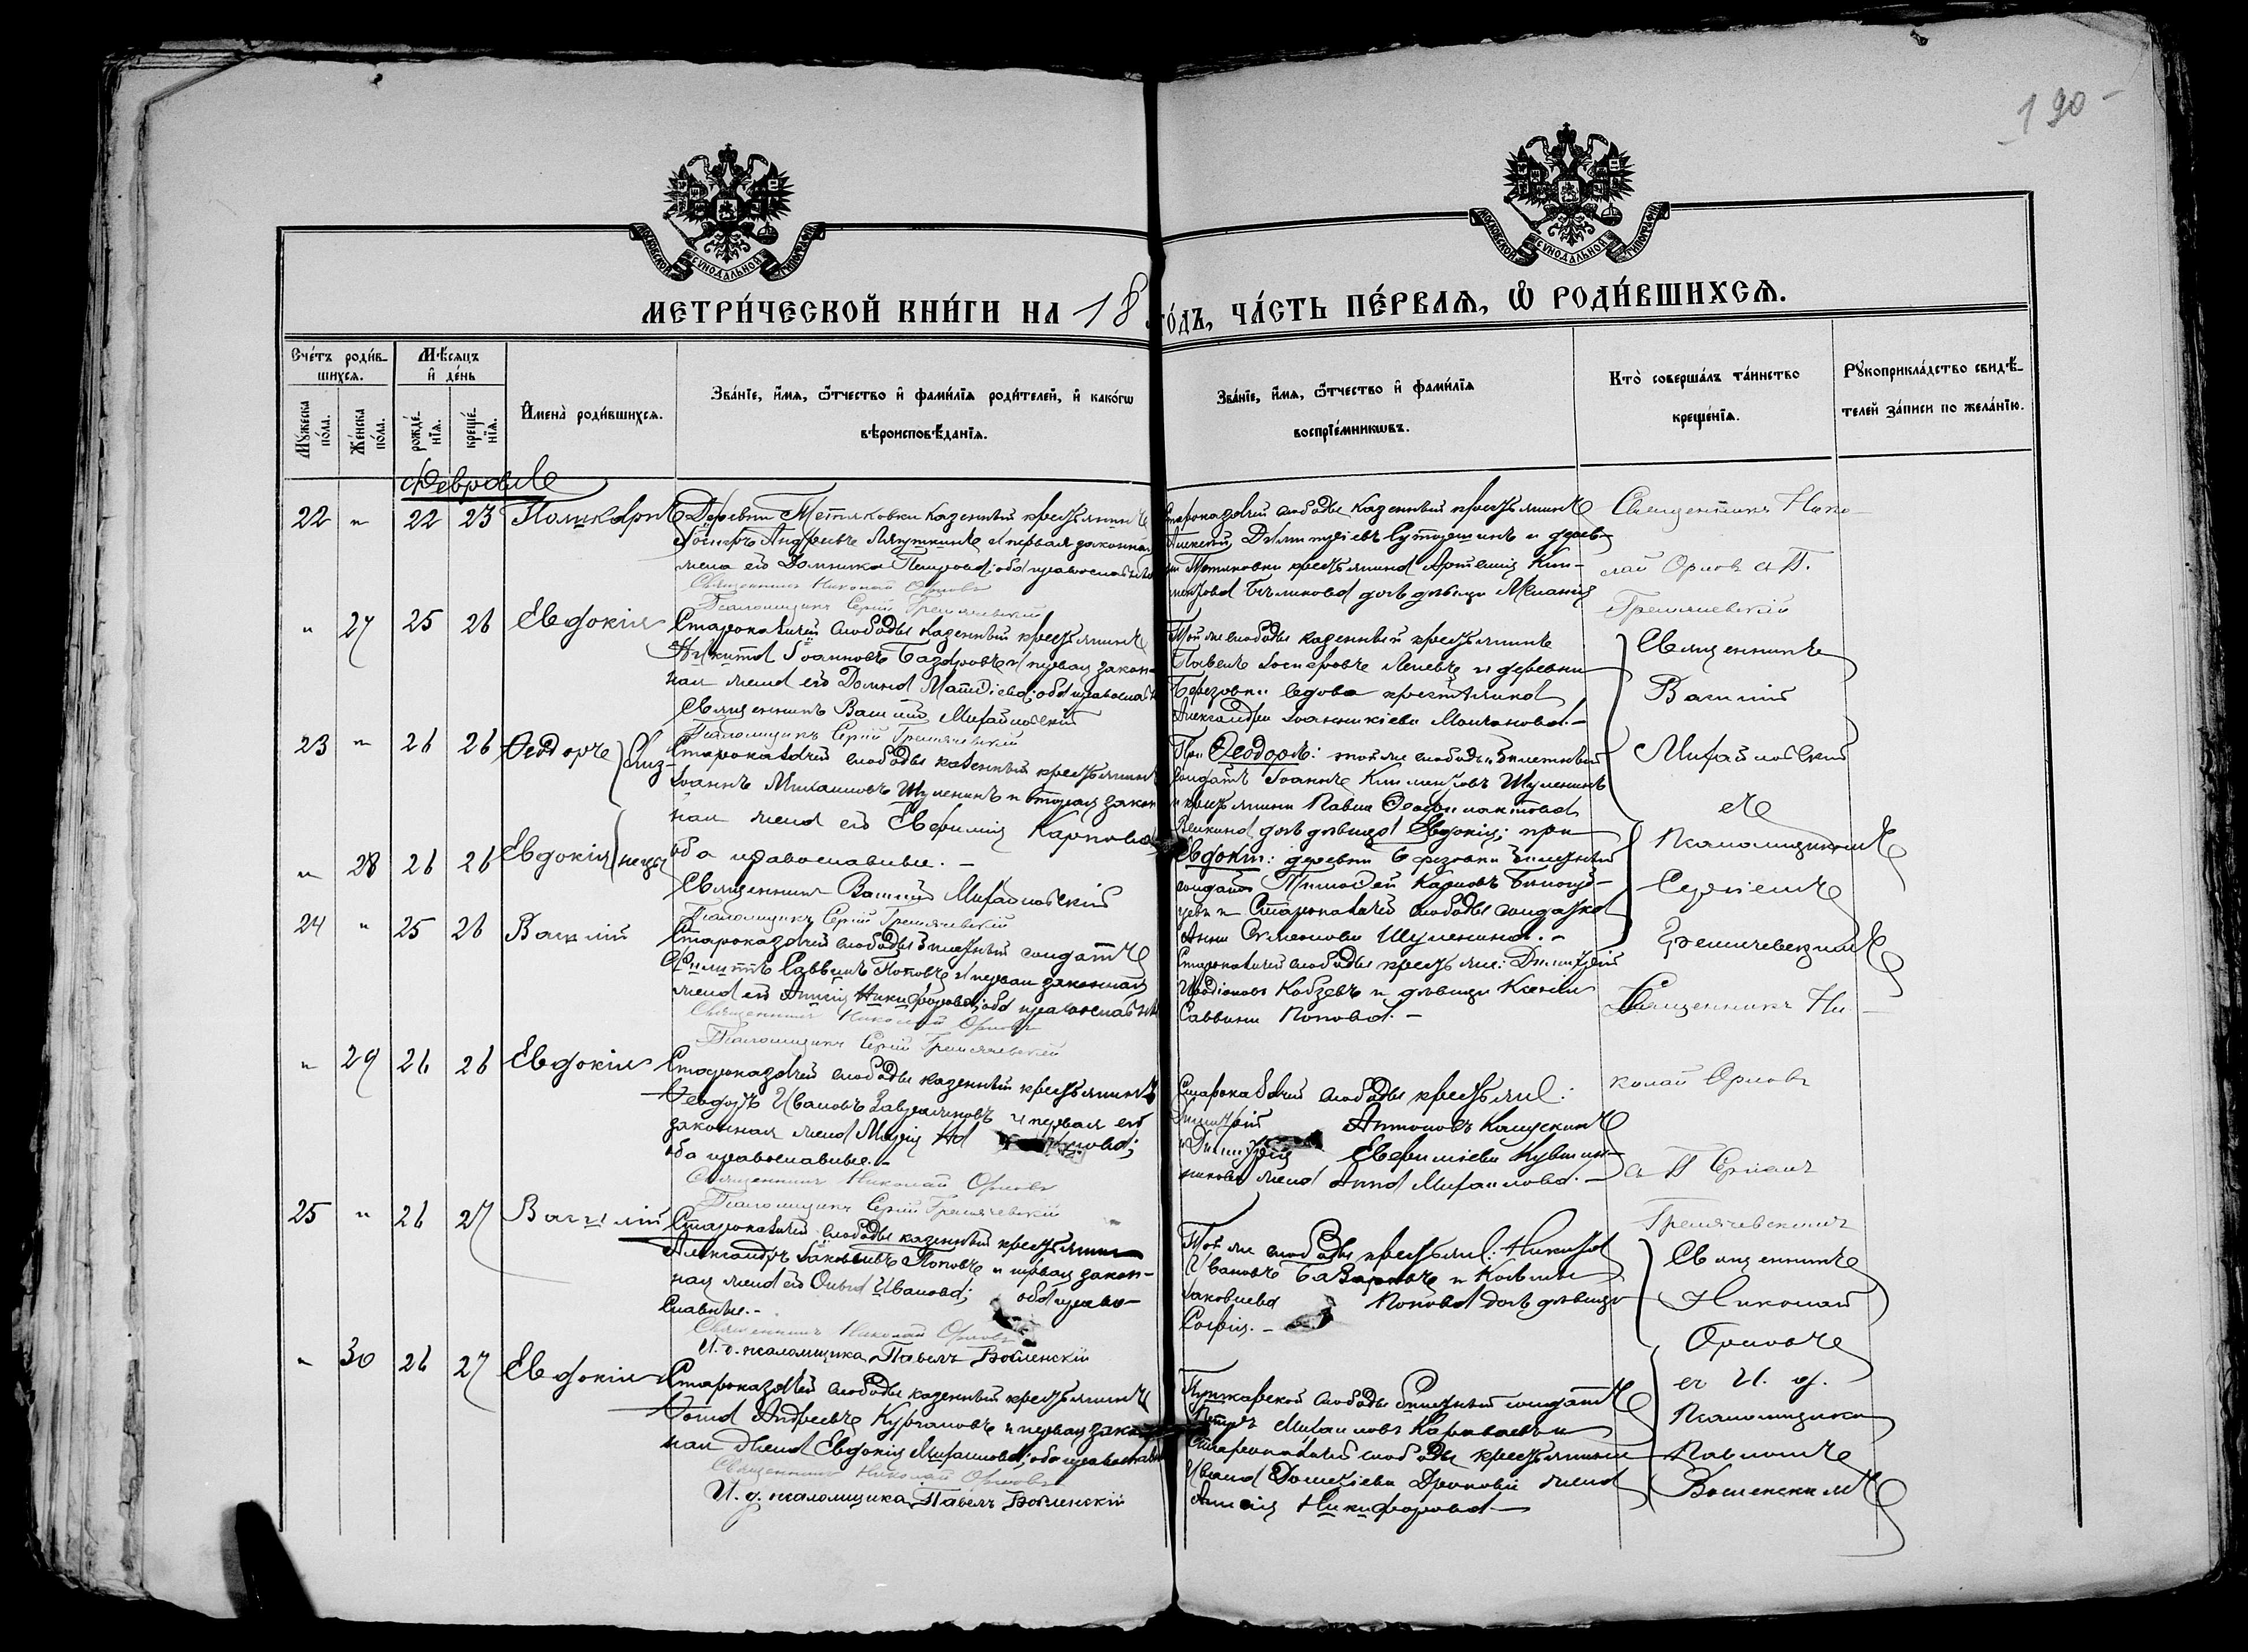 190
МОСКОВСКОЙ СУНОДАЛЬНОЙ ТИПОГРАФІИ
МОСКОВСКОЙ СУНОДАЛЬНОЙ ТИПОГРАФІИ
МЕТРИ́ЧЕСКОЙ КНИ́ГИ НА 18
го́дъ, ЧА́СТЬ ПЕ́РВАѦ, Ѡ҆ РОДИ́ВШИХСѦ.
Сче́тъ роди́в-
шихсѧ.
Мꙋжеска по́ла.
Же́нска по́ла.
Мѣ́сѧцъ
и҆ де́нь
рожде́-
нїѧ.
креще́-
нїѧ.
И҆мена̀ роди́вшихсѧ.
Зва́нїе, и҆́мѧ, ѻ҆́тчество и҆ фами́лїѧ роди́телей, и҆ како́гѡ
вѣроисповѣ́данїѧ.
Зва́нїе, и҆́мѧ, ѻ҆́тчество и҆ фами́лїѧ
воспрїе́мникѡвъ.
Кто̀ соверша́лъ та́инство
креще́нїѧ.
Рꙋкоприкла́дство свидѣ́-
телей за́писи по жела́нїю.
Февраль
22 " 22 23 Поликарпъ
Деревни Метяковки казенный крестьянинъ
Іосифъ Андреевъ Ляпушкинъ и первая законная
жена его Домника Петрова; оба православные
Священникъ Николай Орловъ
Псаломщикъ Сергій Гремячевскій
Староказачей слободы казенный крестьянинъ
Алексей Димитріевъ и дерев-
ни Метяковки крестьянина Артемія Кли-
ментова Бѣликова дочь дѣвица Меланія
Священникъ Нико-
лай Орловъ с П.
Гремячевскій
" 27 25 26 Евдокія
Староказачей слободы казенный крестьянинъ
Никита Іоанновъ Базаровъ и первая закон-
ная жена его Домна Матѳіева; оба православные
Священникъ Василій Михайловскій
Псаломщикъ Сергій Гремячевскій
Той же слободы казенный крестьянинъ
Павелъ Іосифовъ и деревни
Березовки вдова крестьянка
Александра Іоанникіева Молчанова.-
Священникъ
Василій
Михайловскій
съ
Псаломщикомъ
Сергіемъ
Гремячевскимъ
23 " 26 26 Ѳеодоръ
" 28 26 26 Евдокія
Близ-
нецы
Староказачей слободы казенный крестьянинъ
Іоаннъ Михаиловъ Шуленинъ и вторая закон-
ная жена его Евфимія Карпова
оба православные. -
Священникъ Василій Михайловскій
Псаломщикъ Сергій Гремячевскій
При Ѳеодорѣ: той же слободы билетный
солдатъ Іоаннъ Климентовъ Шуленинъ
и крестьянина Павла Ѳеофилактова
дочь дѣвица Евдокія; при
Евдокіи: деревни Березовки билетный
солдатъ Тимоѳей Карповъ
и Староказачей слободы солдатка
Анна Симеонова Шуленина. -
24 " 25 26 Василій
Староказачей слободы билетный солдатъ
Филиппъ Саввинъ Поповъ и первая законная
жена его Анисія Никифорова; оба православные
Священникъ Николай Орловъ
Псаломщикъ Сергій Гремячевскій
Староказачей слободы крестьян: Димитрій
Иродіоновъ Кобзевъ и дѣвица Ксенія
Саввина Попова. -
Священникъ Ни-
колай Орловъ
с П Сергіемъ
Гремячевскимъ
" 29 26 26 Евдокія
Староказачей слободы казенный крестьянинъ
Ѳеодоръ Ивановъ и первая его
законная жена Марія
оба православные. -
Священникъ Николай Орловъ
Псаломщикъ Сергій Гремячевскій
Староказачей слободы крестьян:
Димитрій Антоновъ
и Димитрія Евфиміева Кувшин-
никова жена Анна Михаилова. -
25 " 26 27 Василій
Староказачей слободы казенный крестьянинъ
Александръ Іаковлевъ Поповъ и первая закон-
ная жена его Ольга Иванова; оба право-
славные. -
Священникъ Николай Орловъ
И. д. псаломщика Павелъ Воленскій
Той же слободы крестьян: Никита
Ивановъ Базаровъ и Космы
Іаковлева Попова дочь дѣвица
Софія. -
Священникъ
Николай
Орловъ
съ И. д.
Псаломщика
Павломъ
Воленскимъ
" 30 26 27 Евдокія
Староказачей слободы казенный крестьянинъ
Ѳома Андреевъ Кургановъ и первая закон-
ная жена Евдокія Михаилова; оба православные
Священникъ Николай Орловъ
И. д. псаломщика Павелъ Воленскій
Пушкарской слободы билетный солдатъ
Петръ Михаиловъ и
Староказачей слободы крестьянина
Ивана жена
Анисія Никифорова -